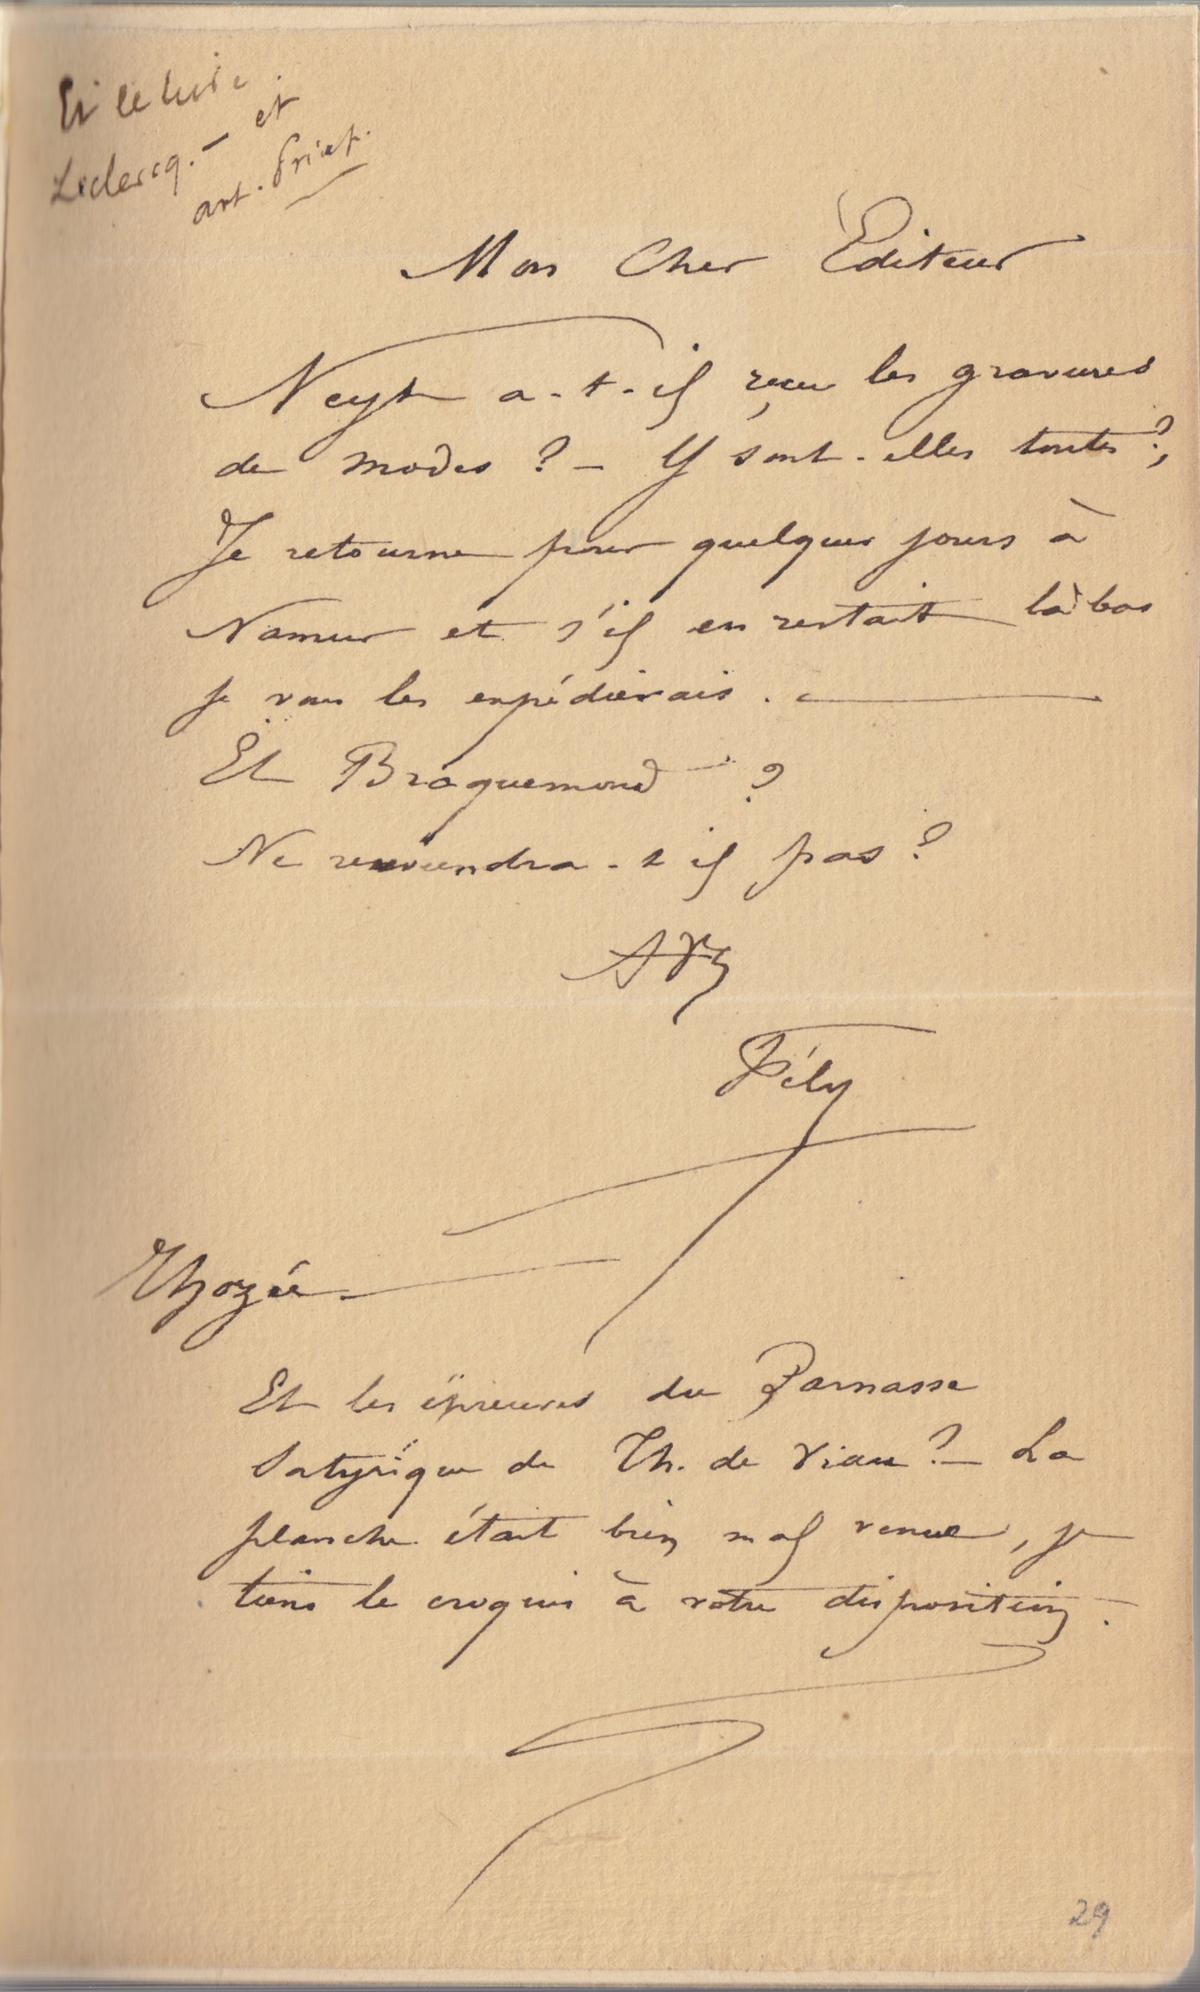 Et le livre
Leclercq. - et
art. Priet.
Mon Cher Éditeur
Neyt a-t-il reçu les gravures
de modes ? - Y sont-elles toutes ?,
Je retourne pour quelques jours à
Namur et s'il en restait là bas
je vous les expédierais.
Et Braquemond ?
Ne reviendra-t il pas ?
Fély
Thozée
Et les épreuves du Parnasse
Satyrique de Th. de Viau ? - La
planche était bien mal venue, je
tiens le croquis à votre disposition.
29